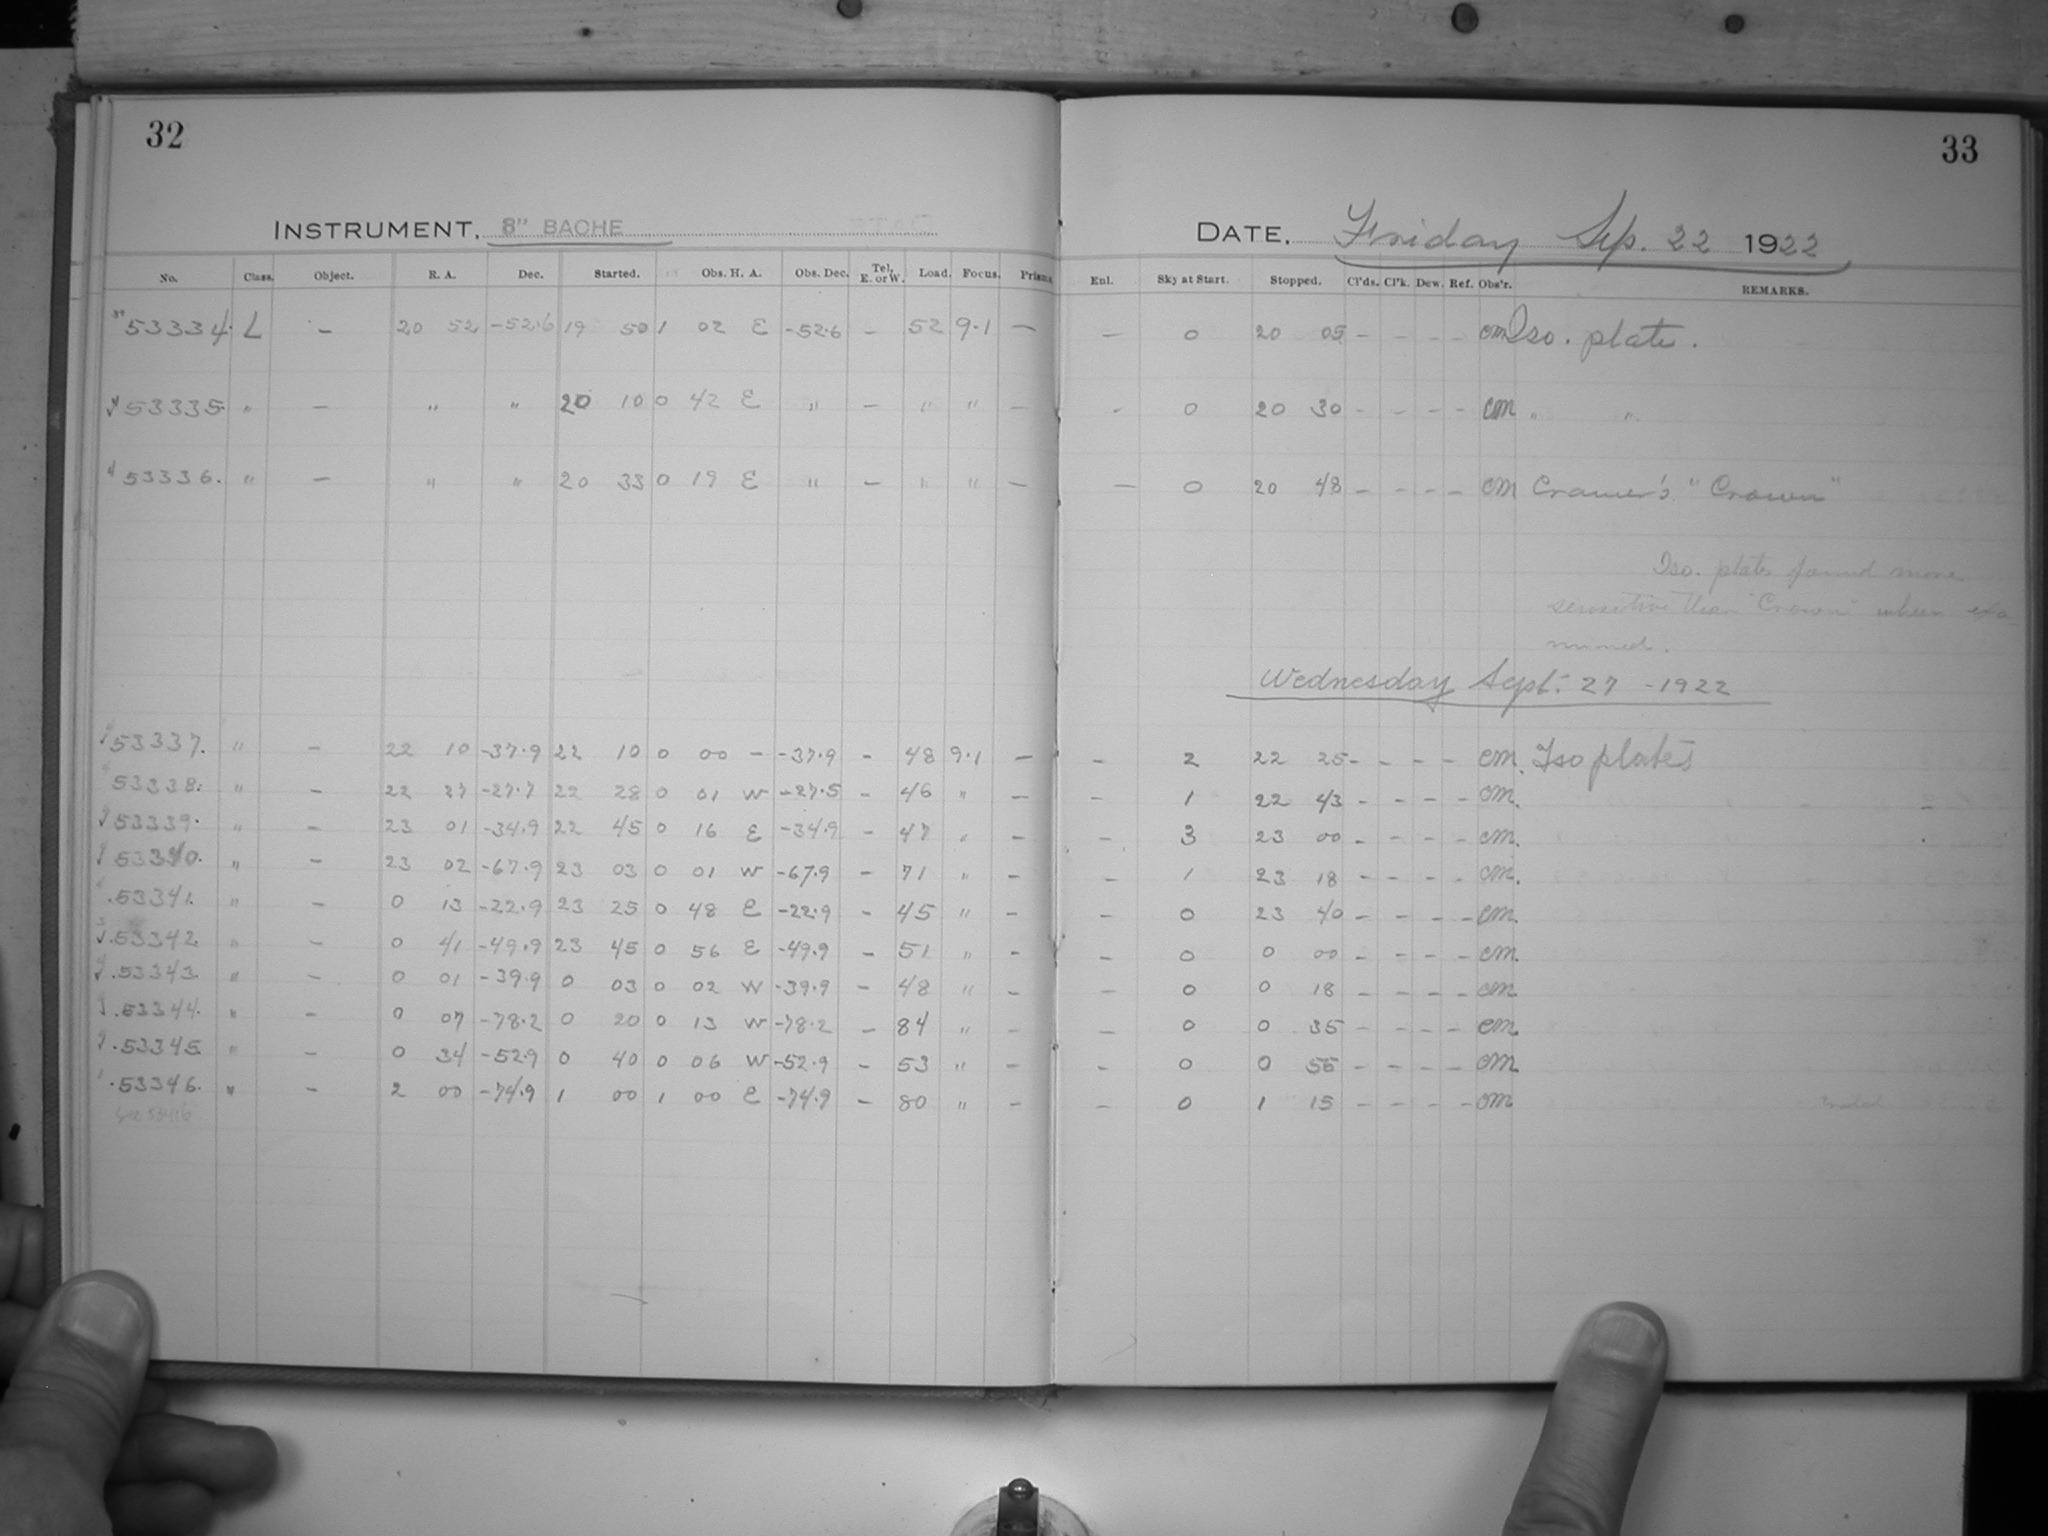 32
33
INSTRUMENT. 8" BACHE
DATE. Friday Sep. 22 1922
No. Class. Object. R. A. Dec. Started. Obs. H. A. Obs. Dec. Tel. E. or W. Load. Focus. Prisms Enl. Sky at Start. Stopped. Cl'ds. Cl'k. Dew. Ref. Obs'r. REMARKS.
53334. L – 20 52 -52.6 19 50 1 02 E -52.6 – 52 9.1 – – 0 20 05 – – – – cm Iso. plate.
53335. " – " " 20 10 0 42 E " – " " – - 0 20 30 – – – – cm " "
53336. " – " " 20 33 0 19 E " – " " – – 0 20 48 – – – – cm Cramer's "Crown"
Iso. plates found more
sensitive than "Crown" when exa
mined.
Wednesday Sept. 27 - 1922
53337. " – 22 10 -37.9 22 10 0 00 – -37.9 – 48 9.1 – – 2 22 25 – – – – cm. Iso plates
53338. " – 22 27 -27.7 22 28 0 01 W -27.5 – 46 " – – 1 22 43 – – – – cm.
53339. " – 23 01 -34.9 22 45 0 16 E -34.9 – 47 " – – 3 23 00 – – – – cm.
53340. " – 23 02 -67.9 23 03 0 01 W -67.9 – 71 " – – 1 23 18 – – – – cm.
53341. " – 0 13 -22.9 23 25 0 48 E -22.9 – 45 " – – 0 23 40 – – – – cm.
53342. " – 0 41 -49.9 23 45 0 56 E -49.9 – 51 " – – 0 0 00 – – – – cm.
53343. " – 0 01 -39.9 0 03 0 02 W -39.9 – 48 " – – 0 0 18 – – – – cm
53344. " – 0 07 -78.2 0 20 0 13 W -78.2 – 84 " – – 0 0 35 – – – – cm
53345. " – 0 34 -52.9 0 40 0 06 W -52.9 – 53 " – – 0 0 55 – – – – cm
53346. " – 2 00 -74.9 1 00 1 00 E -74.9 – 80 " – – 0 1 15 – – – – cm
See